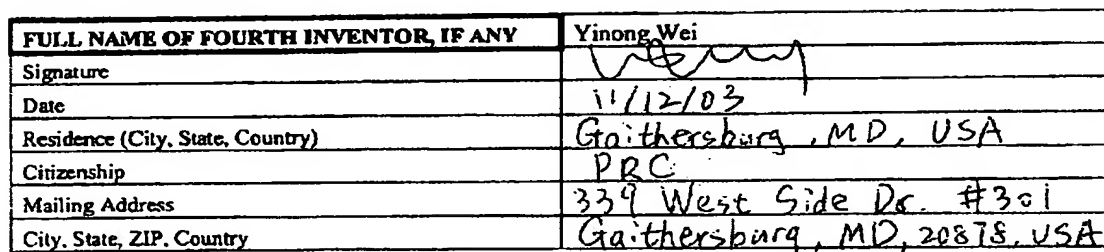 FULL NAME OF FOURTH INVENTOR, IF ANY Yinong Wei
Signature
Date 11/12/03
Residence (City, State, Country) Gaithersburg, MD, USA
Citizenship PRC
Mailing Address 339 West Side Dr. #301
City, State, ZIP, Country Gaithersburg, MD, 20878, USA